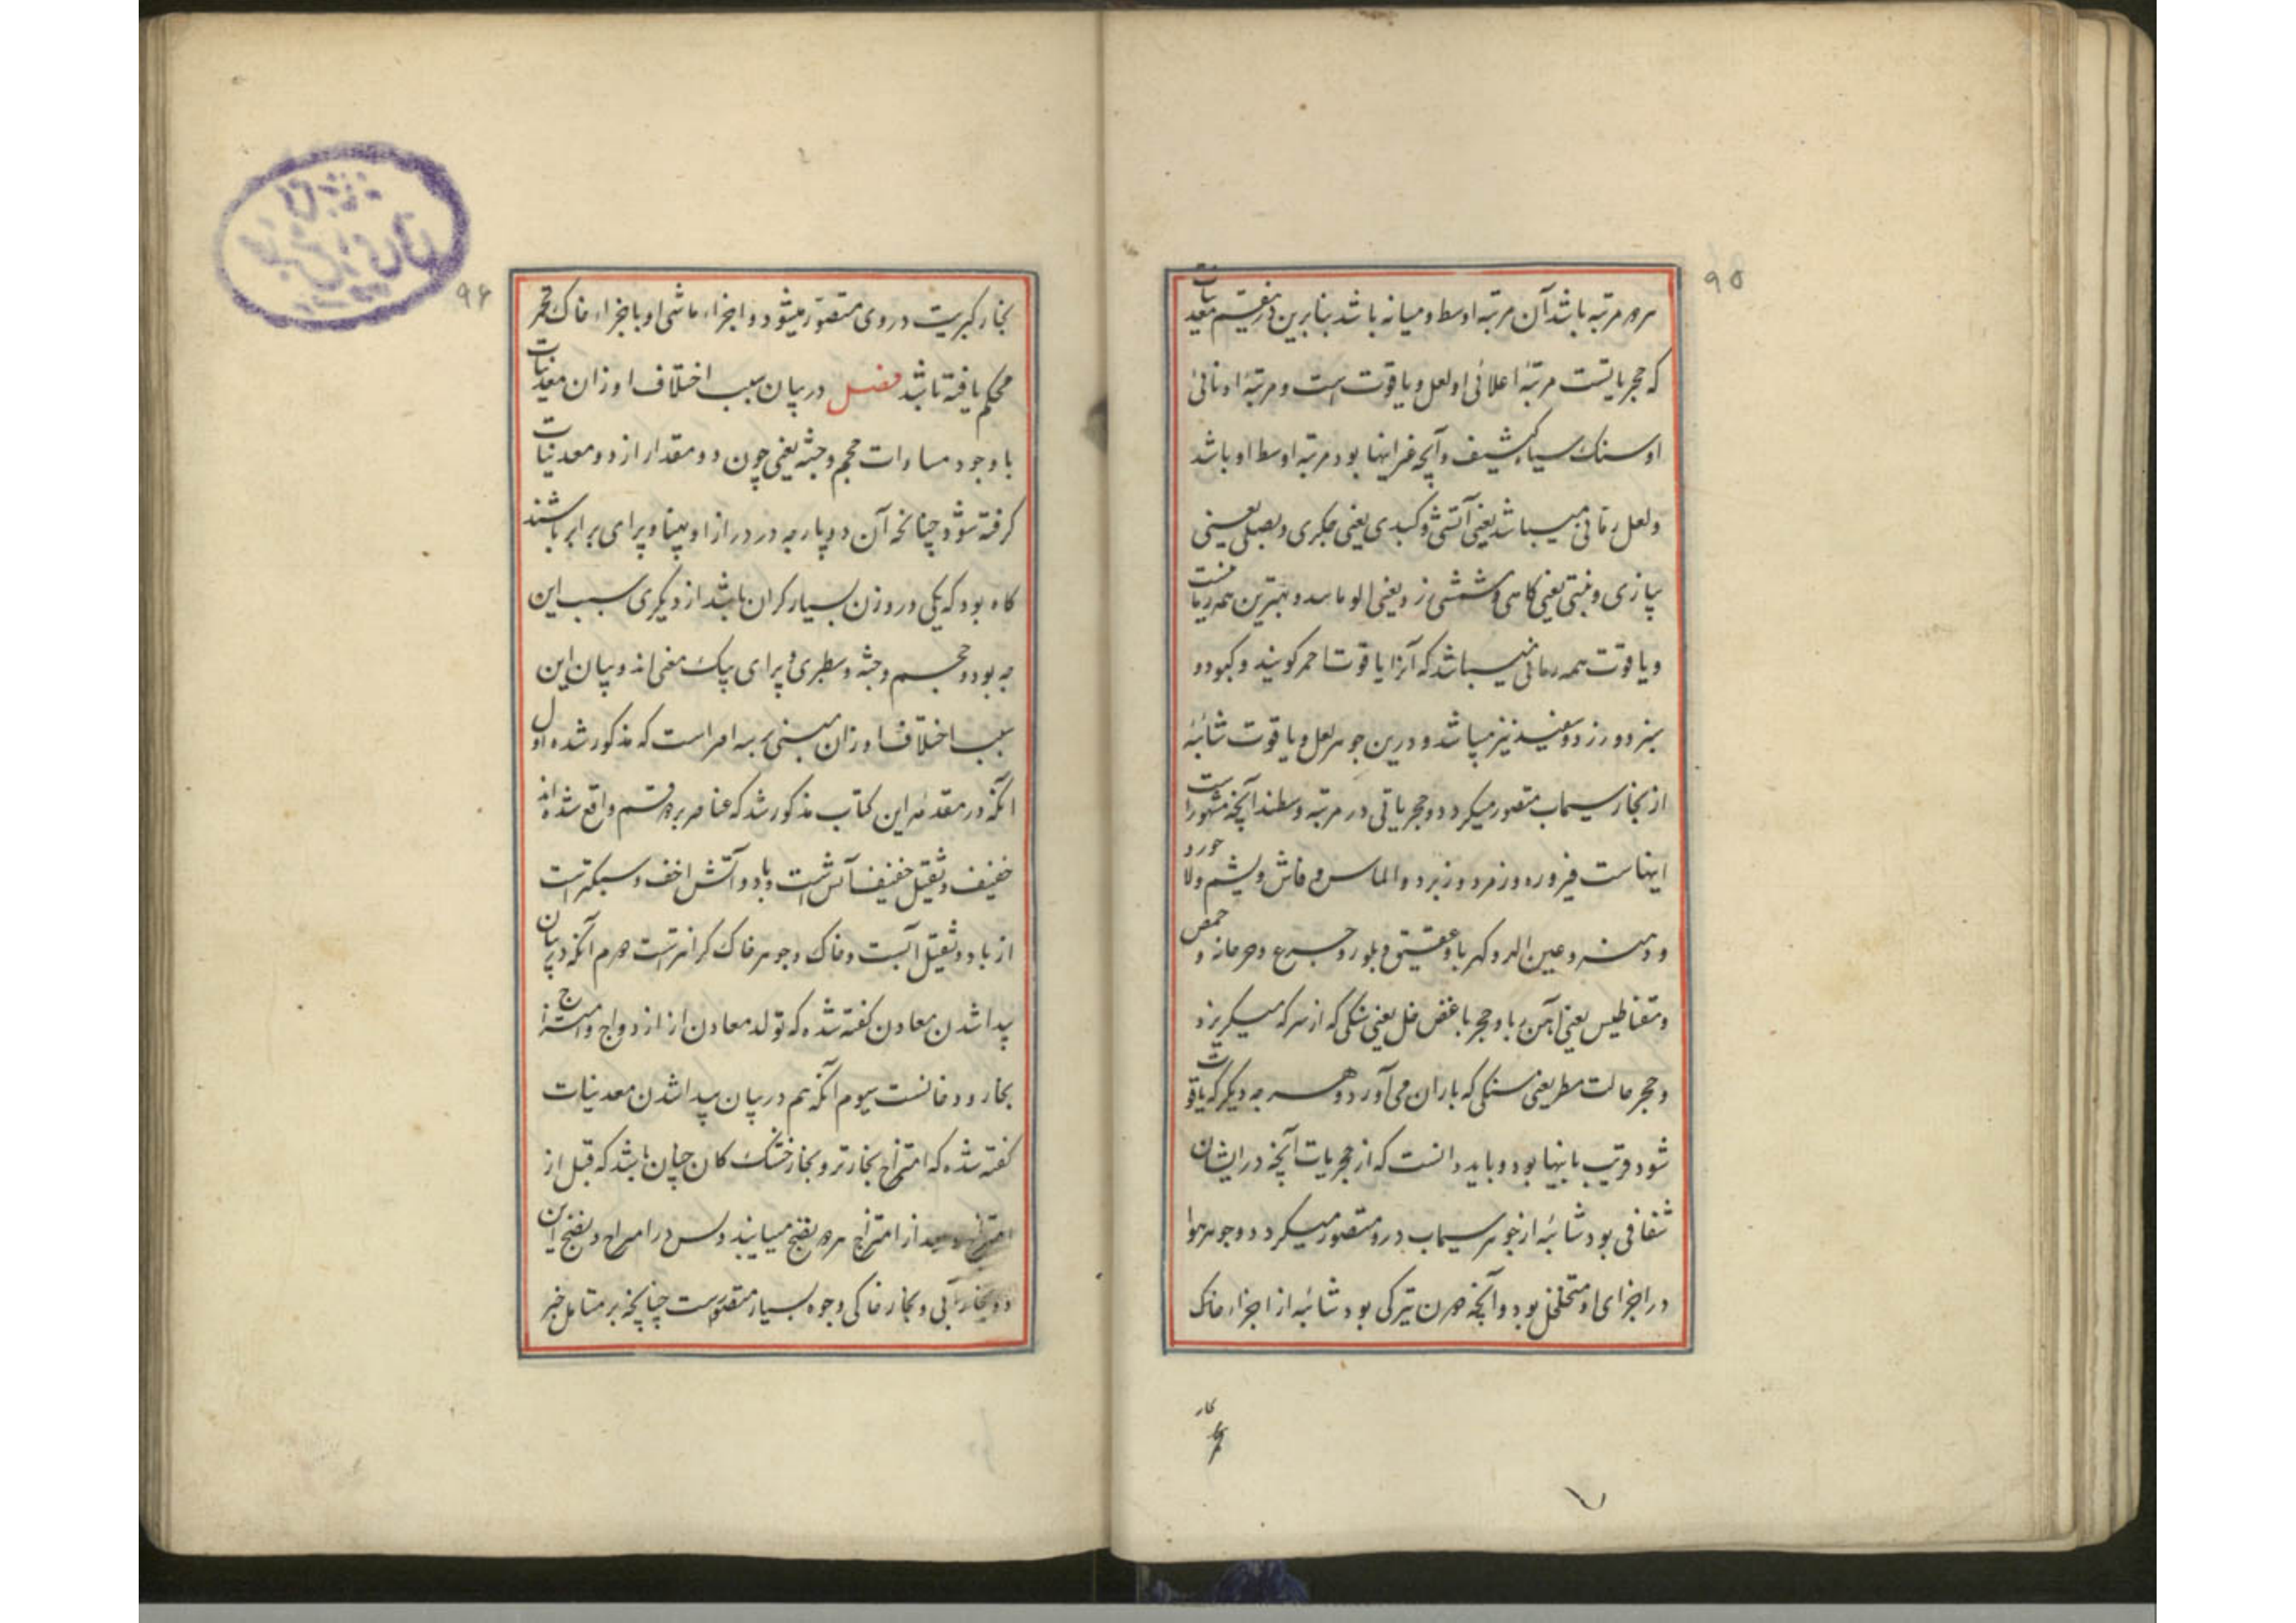 ۹۵
هر دو مرتبه باشد آن مرتبه اوسط و میانه باشد بنابرین در قسم معدنیات
که حجریاتست مرتبۀ اعلائی او لعل و یاقوت است و مرتبۀ ادنائی
او سنک سیاه کثیف و آنچه غیر اینها بود مرتبه اوسط او باشد
و لعل رمانی میباشد یعنی آتشی و کبدی یعنی جکری و بصلی یعنی
پیازی و تبنی یعنی کاهی و مشمشی زرد یعنی و بهترین همه رمانیست
و یاقوت همه رمانی میباشد که آنرا یاقوت احمر کویند و کبود و
سبز و زرد و سفید نیز میباشد و درین جوهر لعل و یاقوت شائبۀ
از بخار سیماب متصور میکردد و حجریاتی در مرتبه وسطند آنچه مشهور است
اینهاست فیروزه و زمرد و زبرجد و الماس و یشم و لاجورد
و دهنه و عین الهر و کهربا و عقیق و بلور و جزع و
و مقناطیس یعنی آهن ربا و حجر باغض خل یعنی سنکی که از سرکه میکریزد
و حجر حالت مطر یعنی سنکی که باران می‌آورد و هر چه دیکر که یافت
شود قریب باینها بود و باید دانست که از حجریات آنچه در ایشان
شفافی بود شائبه از جوهر سیماب درو متصور میکردد و جوهر هوا
در اجزای او متخلخل بود و آنچه درن تیرکی بود شائبه از اجزاء خاک
بخار
۹۶
بخار کبریت در وی متصور میشود و اجزاء مائی او با اجزاء خاک تخمر
محکم یافته باشد فصل در بیان سبب اختلاف اوزان معدنیات
با وجود مساوات حجم و جثه یعنی چون دو مقدار از دو معدنیات
کرفته شود چنانچه آن دو پارچه در درازا و پهنا و پرای برابر باشند
کاه بود که یکی در وزن بسیار کران باشد از دیکری سبب این
چه بود و حجم و جثه و سطبری و پرای یک معنی اند و بیان این
سبب اختلاف اوزان مبنی بر سه امر است که مذکور شده اول
آنکه در مقدمه این کتاب مذکور شد که عناصر بر دو قسم واقع شده اند
خفیف و ثقیل خفیف آتش است و باد و آتش اخف و سبکتر است
از باد و ثقیل آبست و خاک و جوهر خاک کرانترست دوم آنکه در بیان
پیدا شدن معادن کفته شده که تولد معادن از ازدواج و امتزاج
بخار و دخانست سیوم آنکه هم در بیان پیدا شدن معدنیات
کفته شده که امتزاج بخار تر و بخار خشک کان چنان باشد که قبل از
امتزاج و بعد از امتزاج هر دو نضج میابند و پس در امتزاج و نضج این
دو بخار آبی و بخار خاکی وجوه بسیار متصورست چنانچه بر متامل خبیر